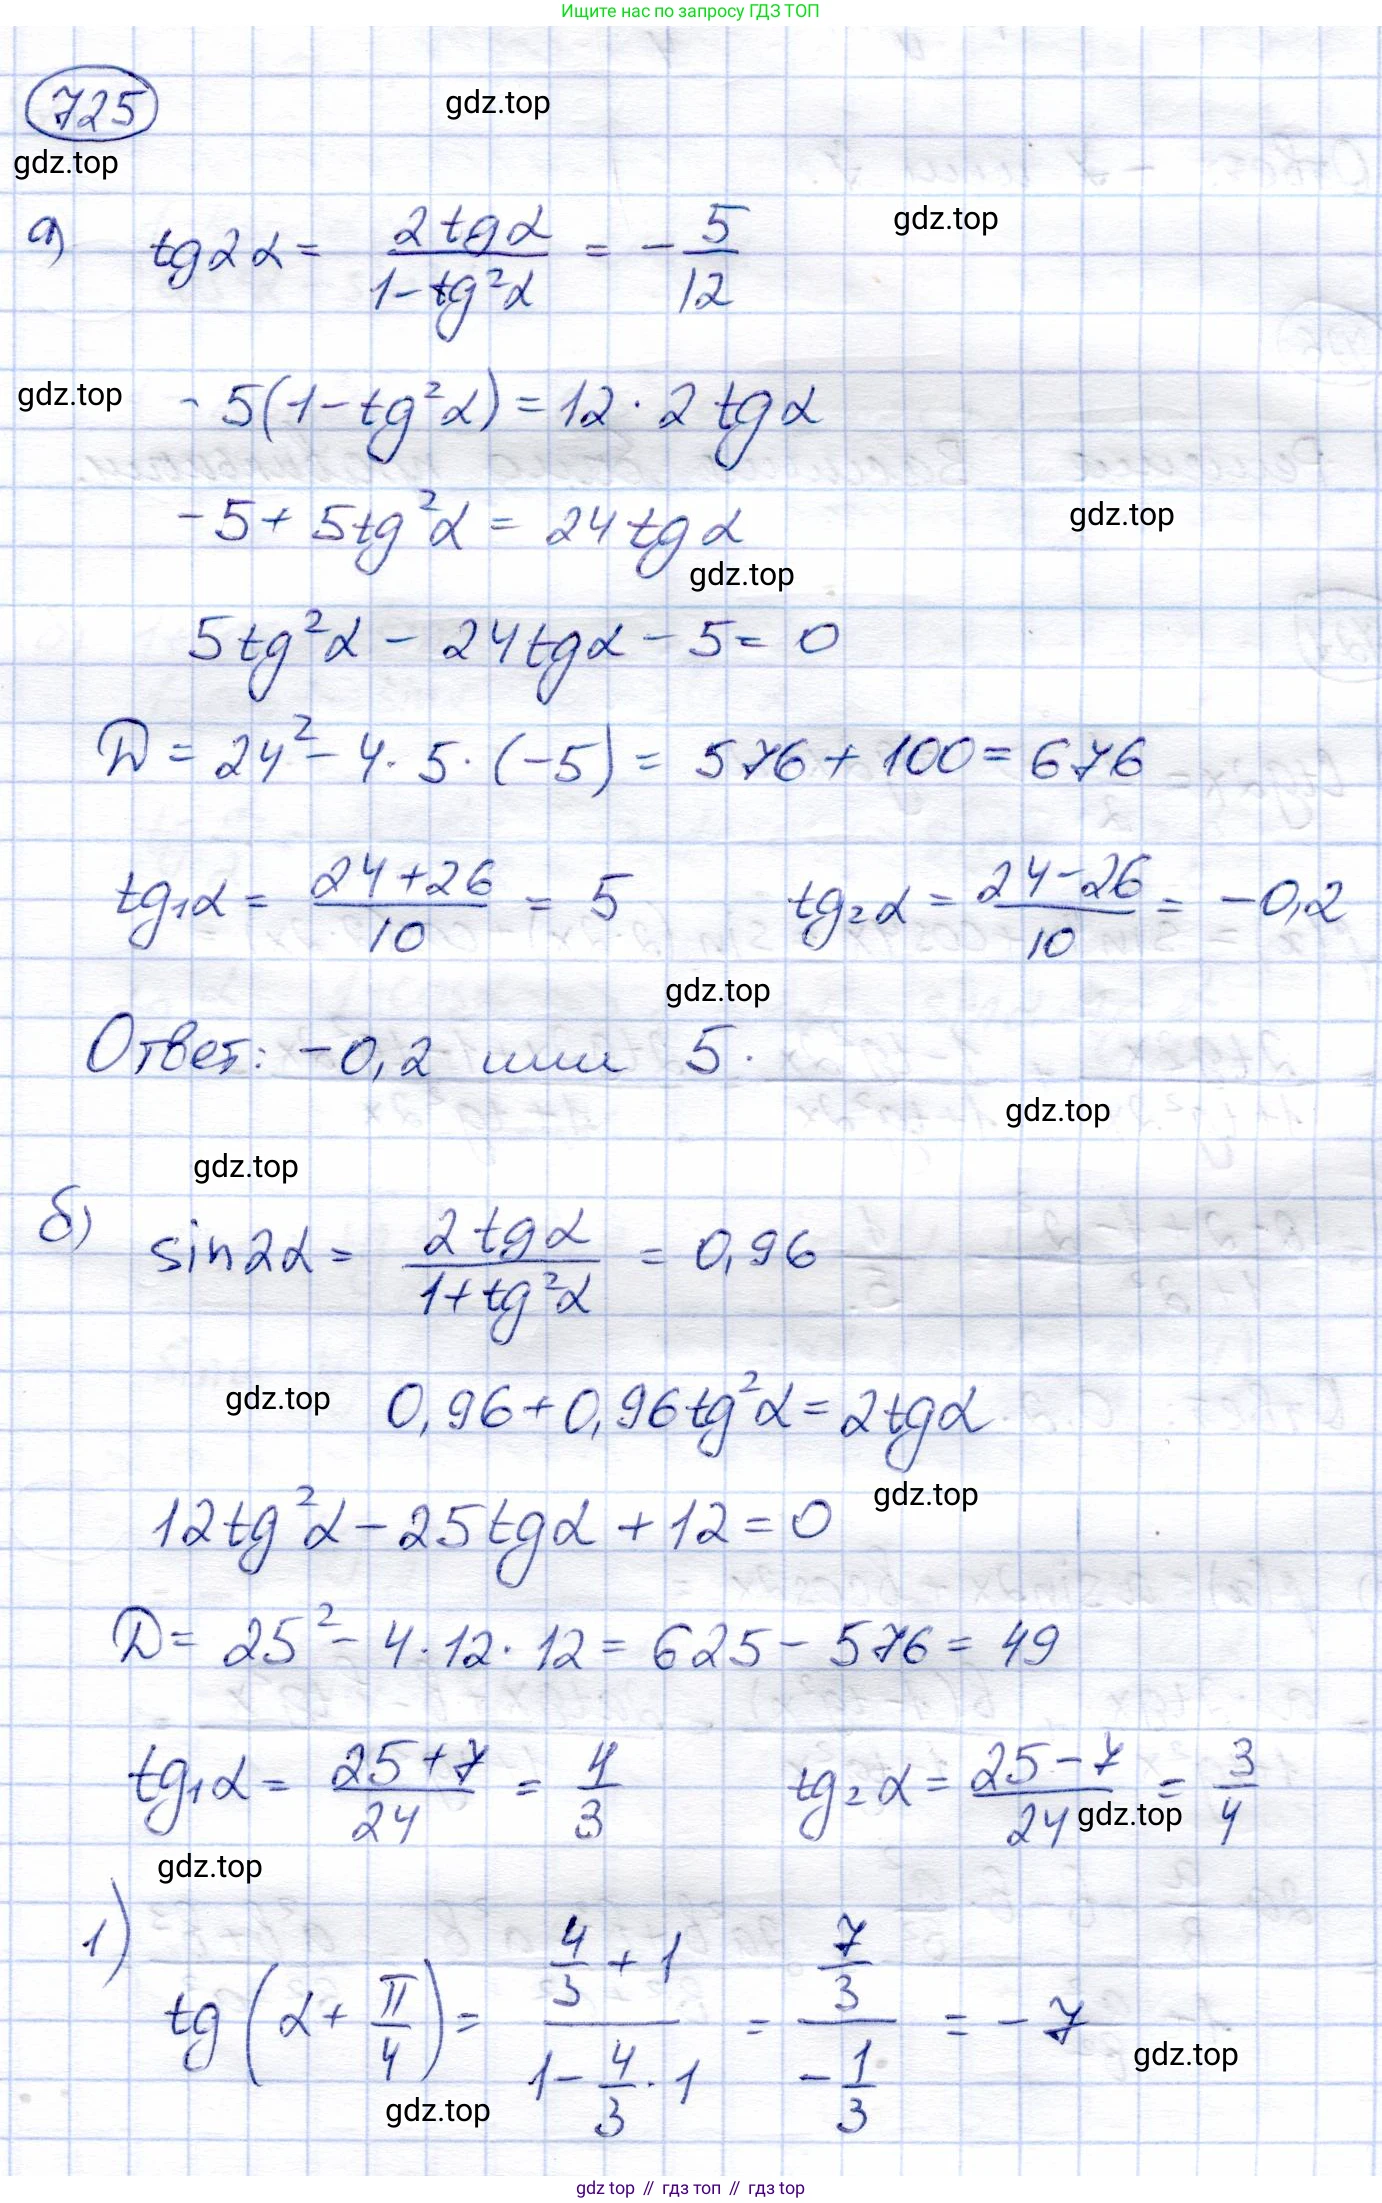 Ищите нас по запросу ГДЗ ТОП
725
gdz.top
gdz.top
а) tg2α = 2tgα / (1-tg²α) = -5/12
gdz.top
gdz.top
-5(1-tg²α) = 12·2tgα
-5+5tg²α = 24tgα
gdz.top
gdz.top
5tg²α - 24tgα - 5 = 0
D = 24² - 4·5·(-5) = 576 + 100 = 676
tg₁α = (24+26)/10 = 5 tg₂α = (24-26)/10 = -0,2
gdz.top
Ответ: -0,2 или 5.
gdz.top
gdz.top
б) sin2α = 2tgα / (1+tg²α) = 0,96
gdz.top
0,96+0,96tg²α = 2tgα
gdz.top
12tg²α - 25tgα + 12 = 0
D = 25² - 4·12·12 = 625 - 576 = 49
tg₁α = (25+7)/24 = 4/3 tg₂α = (25-7)/24 = 3/4
gdz.top
gdz.top
1) tg(α + π/4) = (4/3 + 1)/(1 - 4/3·1) = (7/3)/(-1/3) = -7
gdz.top
gdz.top
gdz top // гдз топ // гдз top